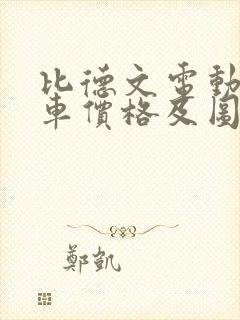 比德文電動
車價格及圖
鄭凱